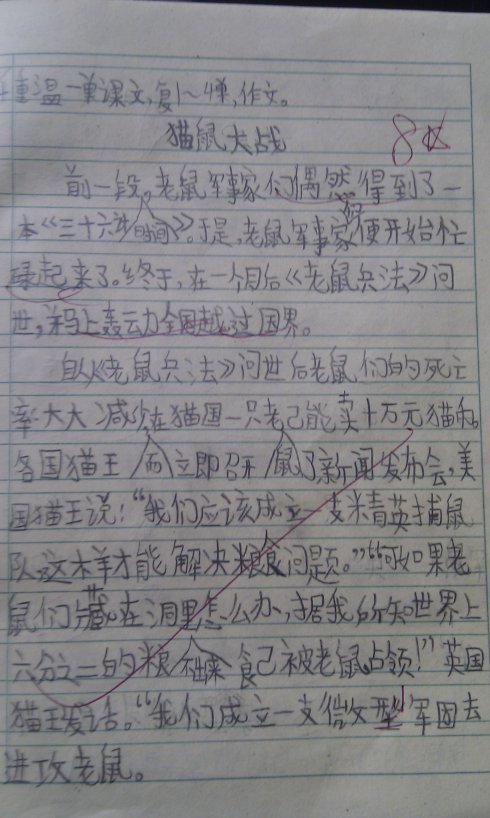 重温一单课文,复1~4单,作文。
猫鼠大战
8
前一段。老鼠军事家们偶然得到了一
本《三十六计》。时间 于是,老鼠军事家 便开始忙
碌起来了。终于,在一个月后《老鼠兵法》问
世,马上轰动全国越过国界。
自从《老鼠兵法》问世后老鼠们的死亡
率大大减少在猫国一只老己能卖十万元猫币。
各国猫王 而 立即召开 鼠 了新闻发布会,美
国猫王说:“我们应该成立一支米青英捕鼠
队这样才能解决粮食问题。”“可如果老
鼠们藏在洞里怎么办,据我所知世界上
六分之二的粮 食己被老鼠占领!”英国
猫王发话。“我们成立一支微型军团去
进攻老鼠。